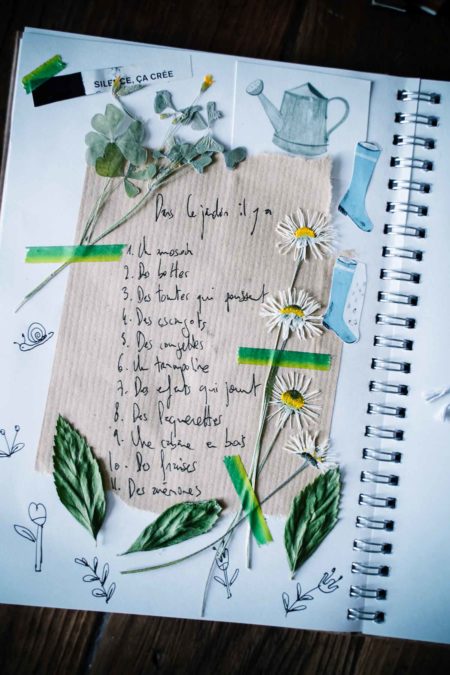 SILENCE, ÇA CRÉE
Dans le jardin il y a
1. Un
2. Des bottes
3. Des tomates qui poussent
4. Des escargots
5. Des courgettes
6. Un trampoline
7. Des enfants qui jouent
8. Des Paquerettes
9. Une cabane en bois
10. Des fraises
11. Des